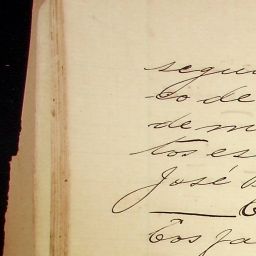 segui
co de
de m
tos es
José
Cos ja